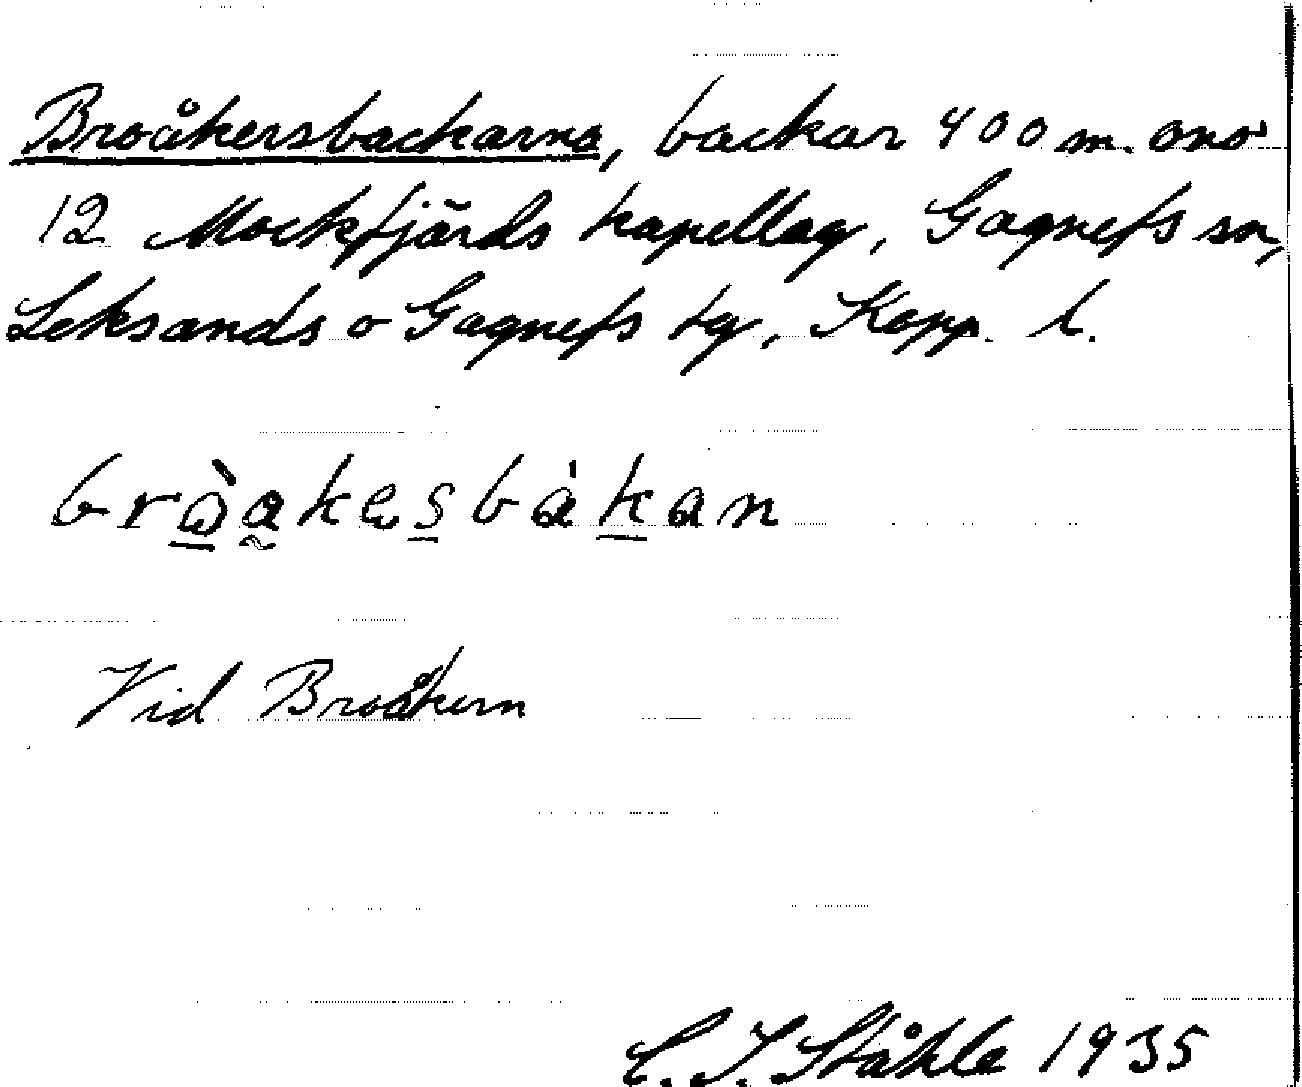 Broåkersbackarna, backar 400 m. ono
12 Mockfjärds kapellag, Gagnefs sn,
Leksands o Gagnefs tg, Kopp. l.
bròakesbàkan
Vid Broåkern
C. I. Ståhle 1935